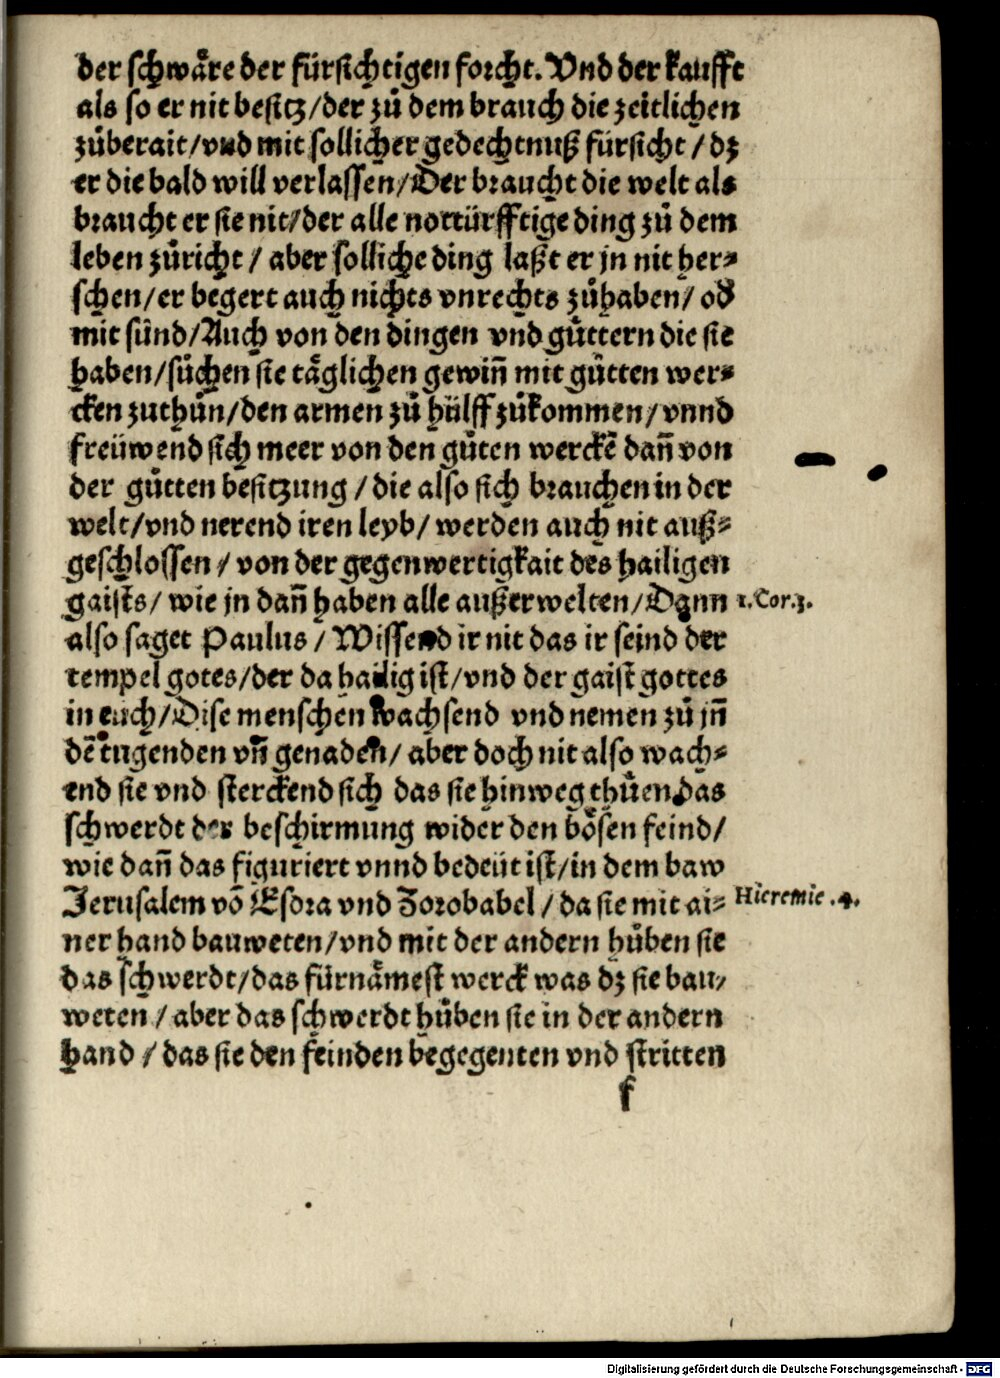 der schwåre der fürsichtigen forcht. Vnd der kaufft
als so er nit besitz/der zů dem brauch die zeitlichen
zůberait/vnd mit sollicher gedechtnuß fürsicht/dz
er die bald will verlassen/Der braucht die welt als
braucht er sie nit/der alle nottürfftige ding zů dem
leben zůricht/aber solliche ding laßt er jn nit her⸗
schen/er begert auch nichts vnrechts zůhaben/od
mit sünd/Auch von den dingen vnd gůttern die sie
haben/sůchen sie tåglichen gewiñ mit gůtten wer⸗
cken zuthůn/den armen zů hülff zůkommen/vnnd
freüwend sich meer von den gůten werckē dañ von
der gůtten besitzung/die also sich brauchen in der
welt/vnd nerend iren leyb/werden auch nit auß⸗
geschlossen/von der gegenwertigkait des hailigen
gaists/wie jn dañ haben alle außerwelten/Dann
1. Cor. 3.
also saget Paulus/Wissend ir nit das ir seind der
tempel gotes/der da hailig ist/vnd der gaist gottes
in euch/Dise menschen wachsend vnd nemen zů jñ
dē tugenden vñ genaden/aber doch nit also wach⸗
end sie vnd sterckend sich das sie hinweg thůen das
schwerdt der beschirmung wider den bősen feind/
wie dañ das figuriert vnnd bedeüt ist/in dem baw
Jerusalem võ Esdra vnd Zorobabel/da sie mit ai⸗
Hieremie .4.
ner hand bauweten/vnd mit der andern hůben sie
das schwerdt/das fürnåmest werck was dz sie bau⸗
weten/aber das schwerdt hůben sie in der andern
hand/das sie den feinden begegenten vnd stritten
f
Digitalisierung gefördert durch die Deutsche Forschungsgemeinschaft - DFG